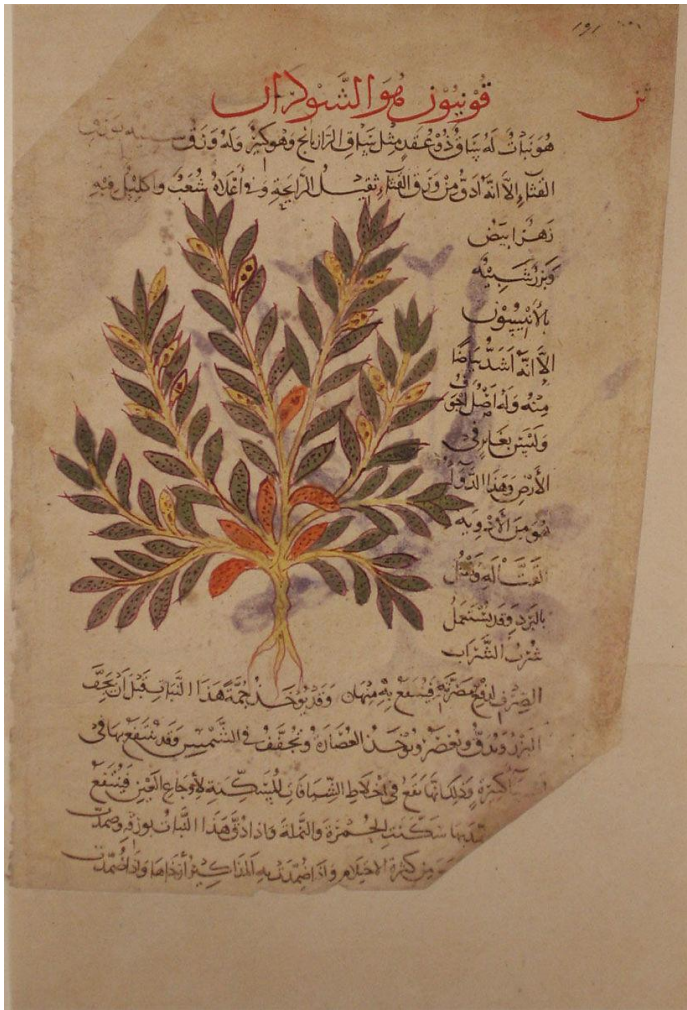 قونيون هو الشوكران
هو نبات له ساق ذو عقد مثل ساق الرازيانج وهو كبير وله ورق
القثاء الا انه ادق من ورق القثاء ثقيل الرايحة وفي اعلاه شعب واكليل فيه
زهر ابيض
وبزر شبيه
بالانيسون
الا انه اشد بياضا
منه وله اصل اجوف
وليس بغاير في
الارض وهذا الدوآء
هو من الادوية
القتالة ويقتل
بالبرد وقد يستعمل
شرب الشراب
الصرف لدفع مضرته فينتفع به منها وقد يوخذ جمة هذا النبات قبل ان يجف
البزر ويدق ويعصر ويوخذ العصارة ويجفف في الشمس وقد ينتفع بها في
كثيرة وذلك انها تقع في اخلاط الشيافات المسكنة لاوجاع العين فينتفع
بها سكنت الحمرة والنملة واذا دق هذا النبات بورقه وضمدت
من كثرة الاحتلام واذا ضمدت به المذاكير ارخاها واذا ضمدت